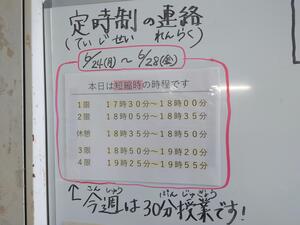 定時制の連絡
(ていじせい れんらく)
6/24(月)～6/28(金)
本日は短縮時の時程です
1限 17時30分～18時00分
2限 18時05分～18時35分
休憩 18時35分～18時50分
3限 18時50分～19時20分
4限 19時25分～19時55分
↑今週は30分授業です!
こんしゅう ぷんじゅぎょう